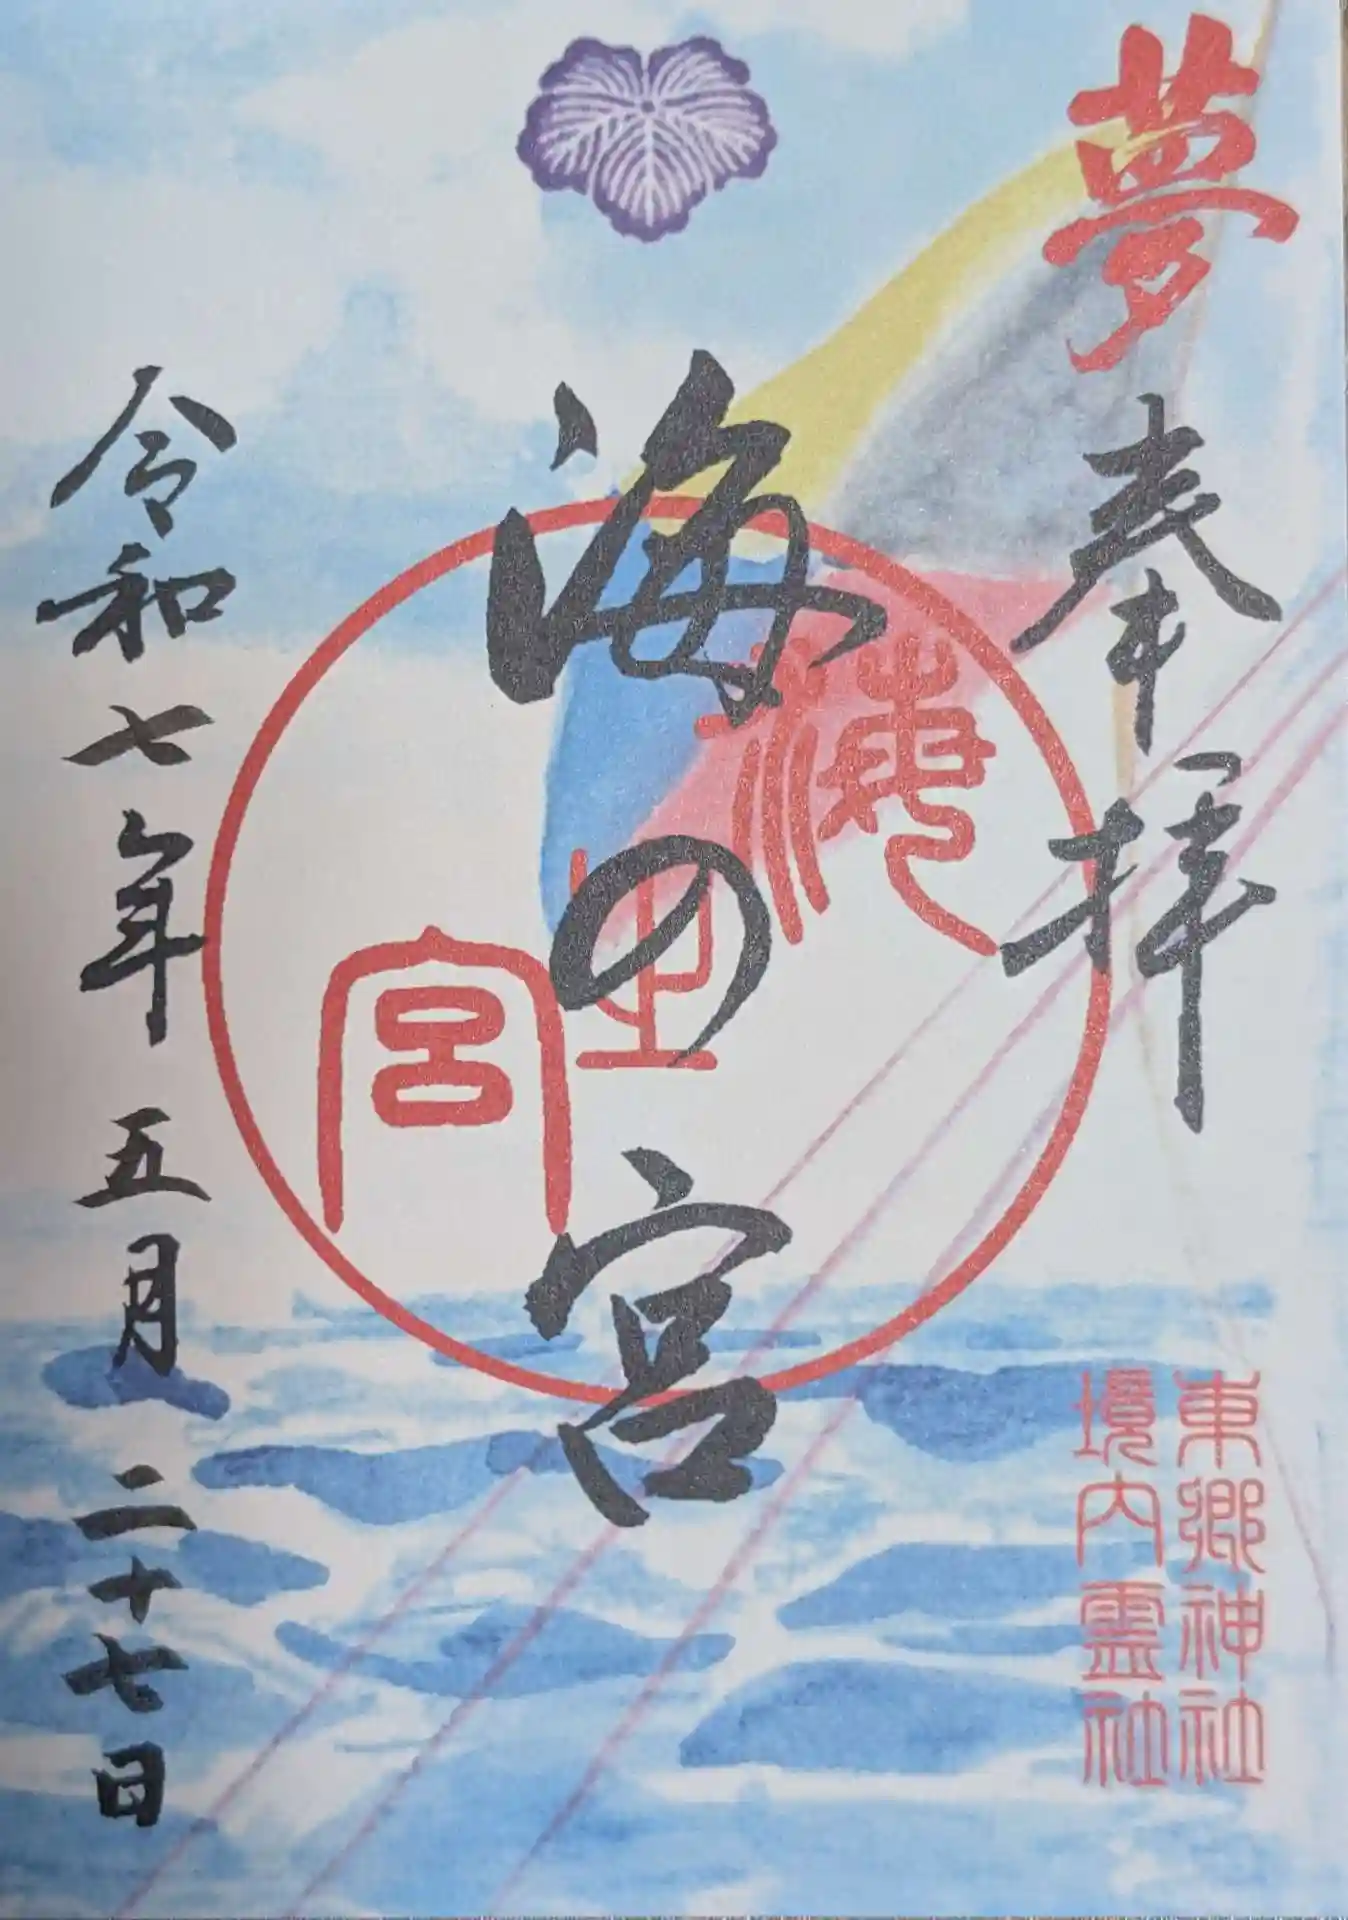 夢
奉拝
東郷神社
境内霊社
海の宮
海之宮
令和七年五月二十七日